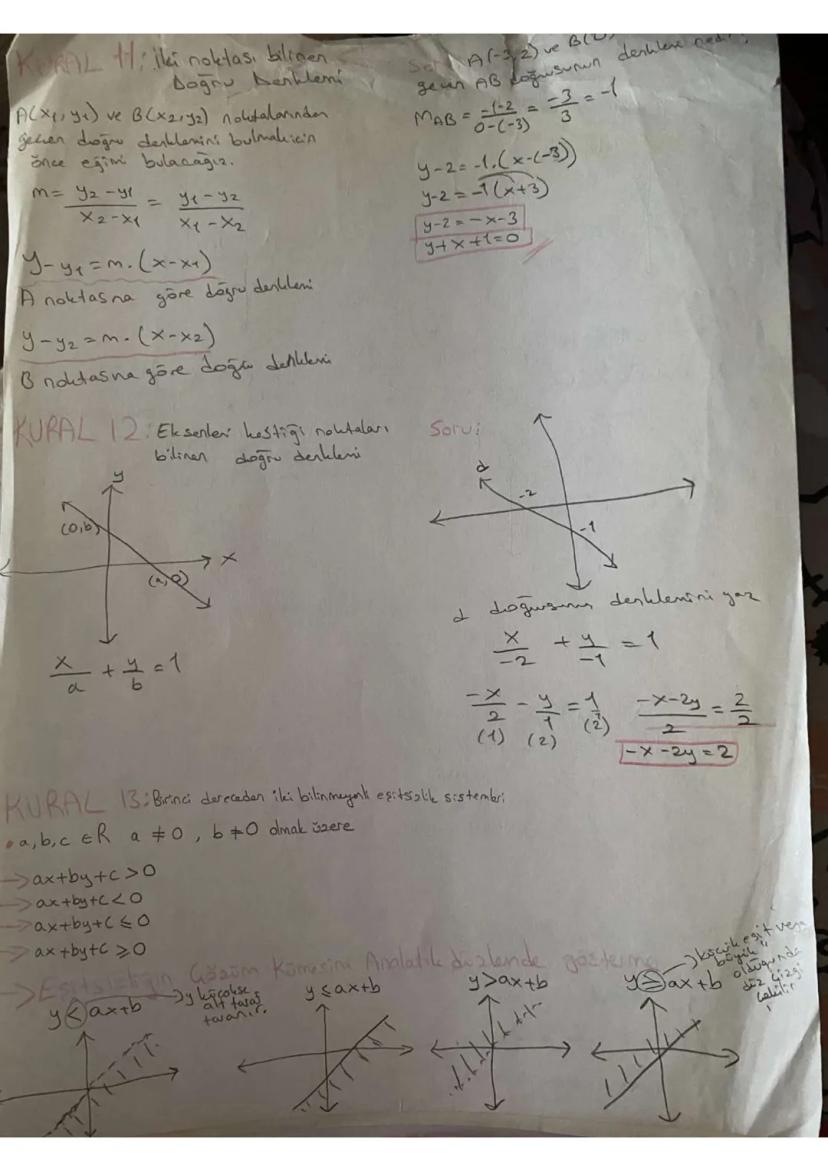 KURAL 11: İki noktası bilinen
Doğru Denklemi
A(x₁,y₁) ve B(x₂,y₂) noktalarından
geçen doğru denklemini bulmak için
önce eğimi bulacağız.
m = y₂-y₁ / x₂-x₁ = y₁-y₂ / x₁-x₂
y-y₁ = m.(x-x₁)
A noktasına göre doğru denklemi
y-y₂ = m.(x-x₂)
B noktasına göre doğru denklemi
A(-3,2) ve B(
geçen AB doğrusunun denklemi nedir
MAB = -1-2 / 0-(-3) = -3/3 = -1
y-2 = -1.(x-(-3))
y-2 = -1(x+3)
y-2 = -x-3
y+x+1=0
KURAL 12: Eksenleri kestiği noktaları
bilinen doğru denklemi
y
(0,b)
x
(a,0)
x/a + y/b = 1
Soru:
d
-2
-1
d doğrusunun denklemini yaz
x/-2 + y/-1 = 1
-x/2 - y/1 = 1/1
(1) (2) (2)
-x-2y/2 = 2/2
-x-2y=2
KURAL 13: Birinci dereceden iki bilinmeyenli eşitsizlik sistemleri
• a,b,c ∈ R a ≠ 0, b ≠ 0 olmak üzere
→ ax+by+c > 0
→ ax+by+c < 0
→ ax+by+c ≤ 0
→ ax+by+c ≥ 0
→ Eşitsizliğin Çözüm Kümesini Analatik düzlemde gösterme
y < ax+b
→ y küçükse
alt taraf
taranır.
y ≤ ax+b
y > ax+b
y ≥ ax+b
→ küçük eşit veya
büyük
olduğunda
düz çizgi
çekilir